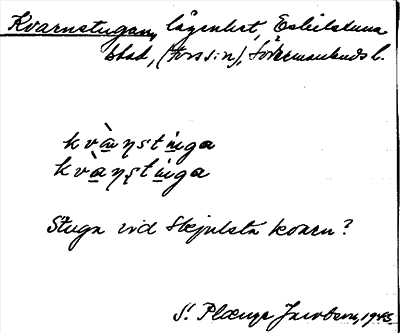 Kvarnstugan, lägenhet, Eskilstuna
stad, (Fors sn), Södermanlands l.
kvànstùga
kvànstùga
Stuga vid Skjulsta kvarn?
S. Plænge Jacobson, 1945.